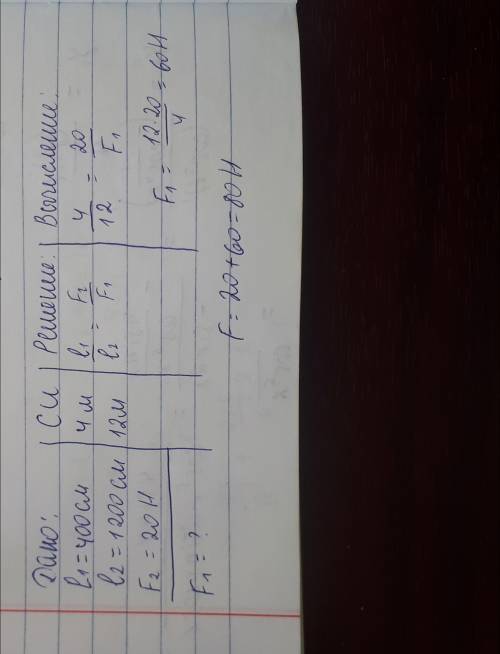 Дано: | СИ | Решение: | Вычисление:
l₁ = 400 см | 4 м | l₁/l₂ = F₂/F₁ | 4/12 = 20/F₁
l₂ = 1200 см | 12 м
F₂ = 20 Н | F₁ = 12·20/4 = 60 Н
F₁ = ?
F = 20 + 60 = 80 Н